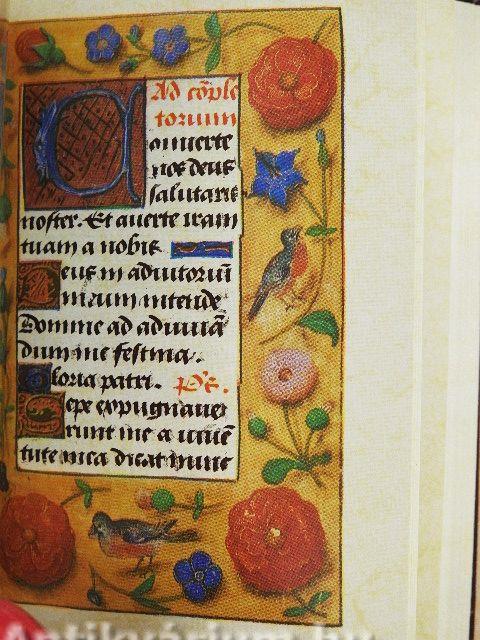 Ad cõple
torium
Conuerte
nos deus
salutaris
noster. Et auerte iram
tuam a nobis
Deus in adiutoriũ
meum intende
Domine ad adiuuã
dum me festina.
Gloria patri. ps.
Sepe expugnauer
runt me a iuuẽ
tute mea dicat nunc
Antikvárium.hu